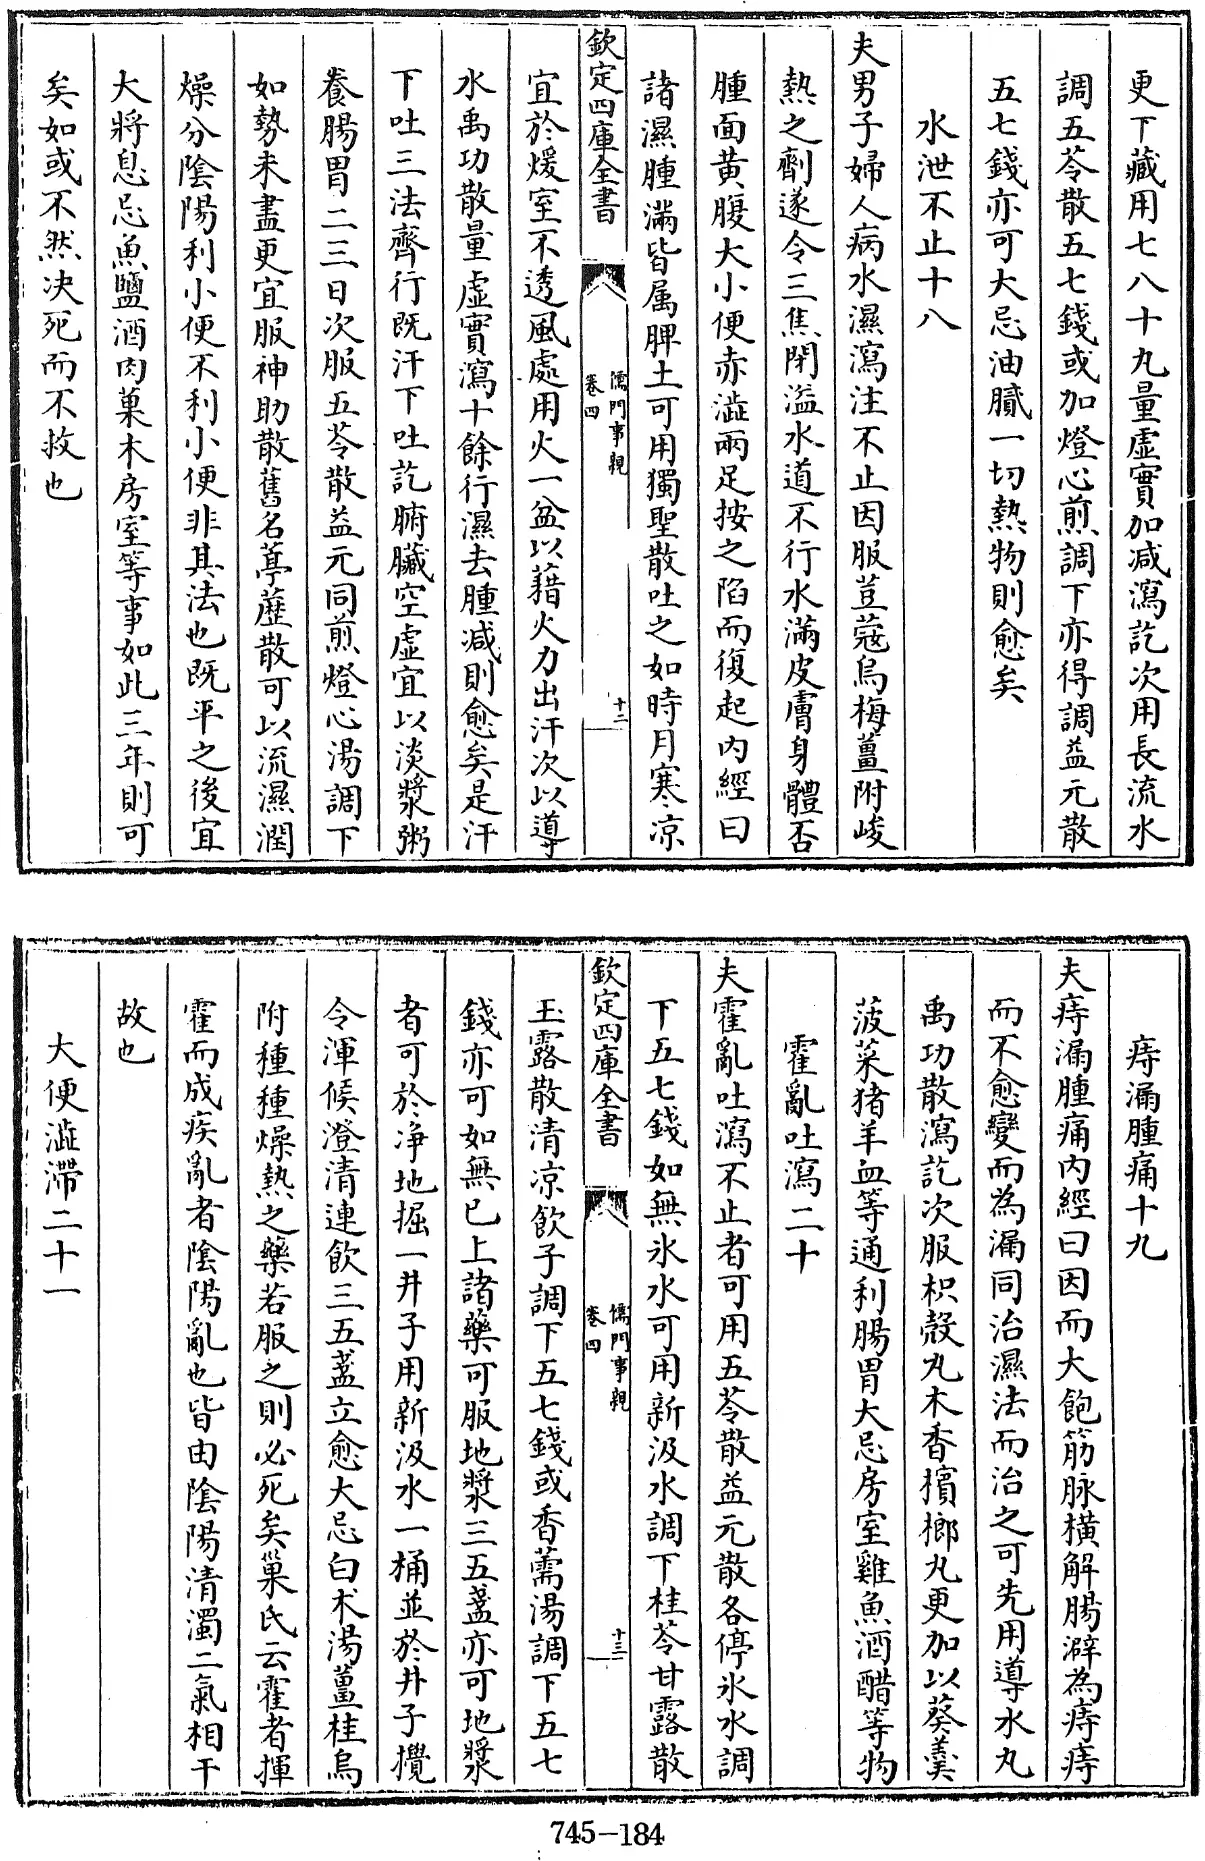 更下藏用七八十丸量虛實加減瀉訖次用長流水
調五苓散五七錢或加燈心煎調下亦得調益元散
五七錢亦可大忌油膩一切熱物則愈矣
水泄不止十八
夫男子婦人病水濕瀉注不止因服荳蔻烏梅薑附峻
熱之劑遂令三焦閉溢水道不行水滿皮膚身體否
腫面黃腹大小便赤澁兩足按之陷而復起內經曰
諸濕腫滿皆属脾土可用獨聖散吐之如時月寒凉
欽定四庫全書
儒門事親
卷四
十二
宜於煖室不透風處用火一盆以藉火力出汗次以導
水禹功散量虛實瀉十餘行濕去腫減則愈矣是汗
下吐三法齊行既汗下吐訖腑臟空虛宜以淡漿粥
養腸胃二三日次服五苓散益元同煎燈心湯調下
如勢未盡更宜服神助散舊名葶藶散可以流濕潤
燥分陰陽利小便不利小便非其法也既平之後宜
大將息忌魚鹽酒肉菓木房室等事如此三年則可
矣如或不然决死而不救也
痔漏腫痛十九
夫痔漏腫痛內經曰因而大飽筋脉橫解腸澼為痔痔
而不愈變而為漏同治濕法而治之可先用導水丸
禹功散瀉訖次服枳殼丸木香檳榔丸更加以葵羹
菠菜猪羊血等通利腸胃大忌房室雞魚酒醋等物
霍亂吐瀉二十
夫霍亂吐瀉不止者可用五苓散益元散各停氷水調
下五七錢如無氷水可用新汲水調下桂苓甘露散
欽定四庫全書
儒門事親
卷四
十三
玉露散清凉飲子調下五七錢或香薷湯調下五七
錢亦可如無已上諸藥可服地漿三五盞亦可地漿
者可於净地掘一井子用新汲水一桶並於井子攪
令渾候澄清連飲三五盞立愈大忌白术湯薑桂烏
附種種燥熱之藥若服之則必死矣巢氏云霍者揮
霍而成疾亂者陰陽亂也皆由陰陽清濁二氣相干
故也
大便澁滯二十一
745-184